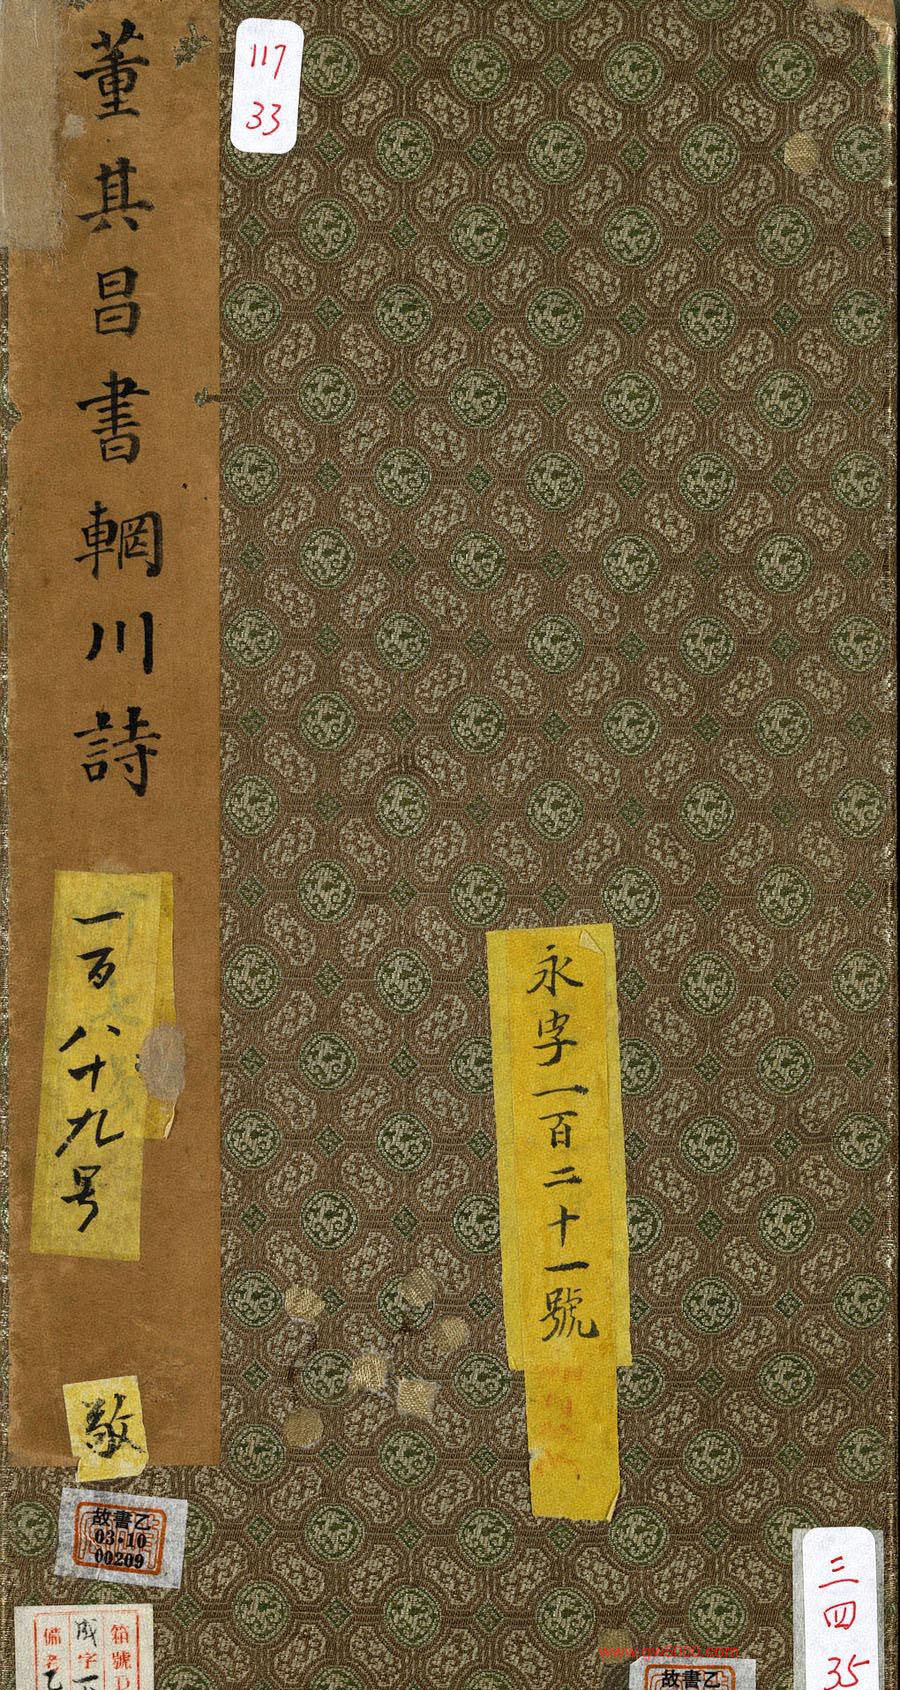 董其昌書輞川詩
117
33
一百八十九号
永字一百二十一號
敬
故書乙
03·10
00209
箱號
成字一
備考乙
三
四
35
www.gw5000.com
故書乙